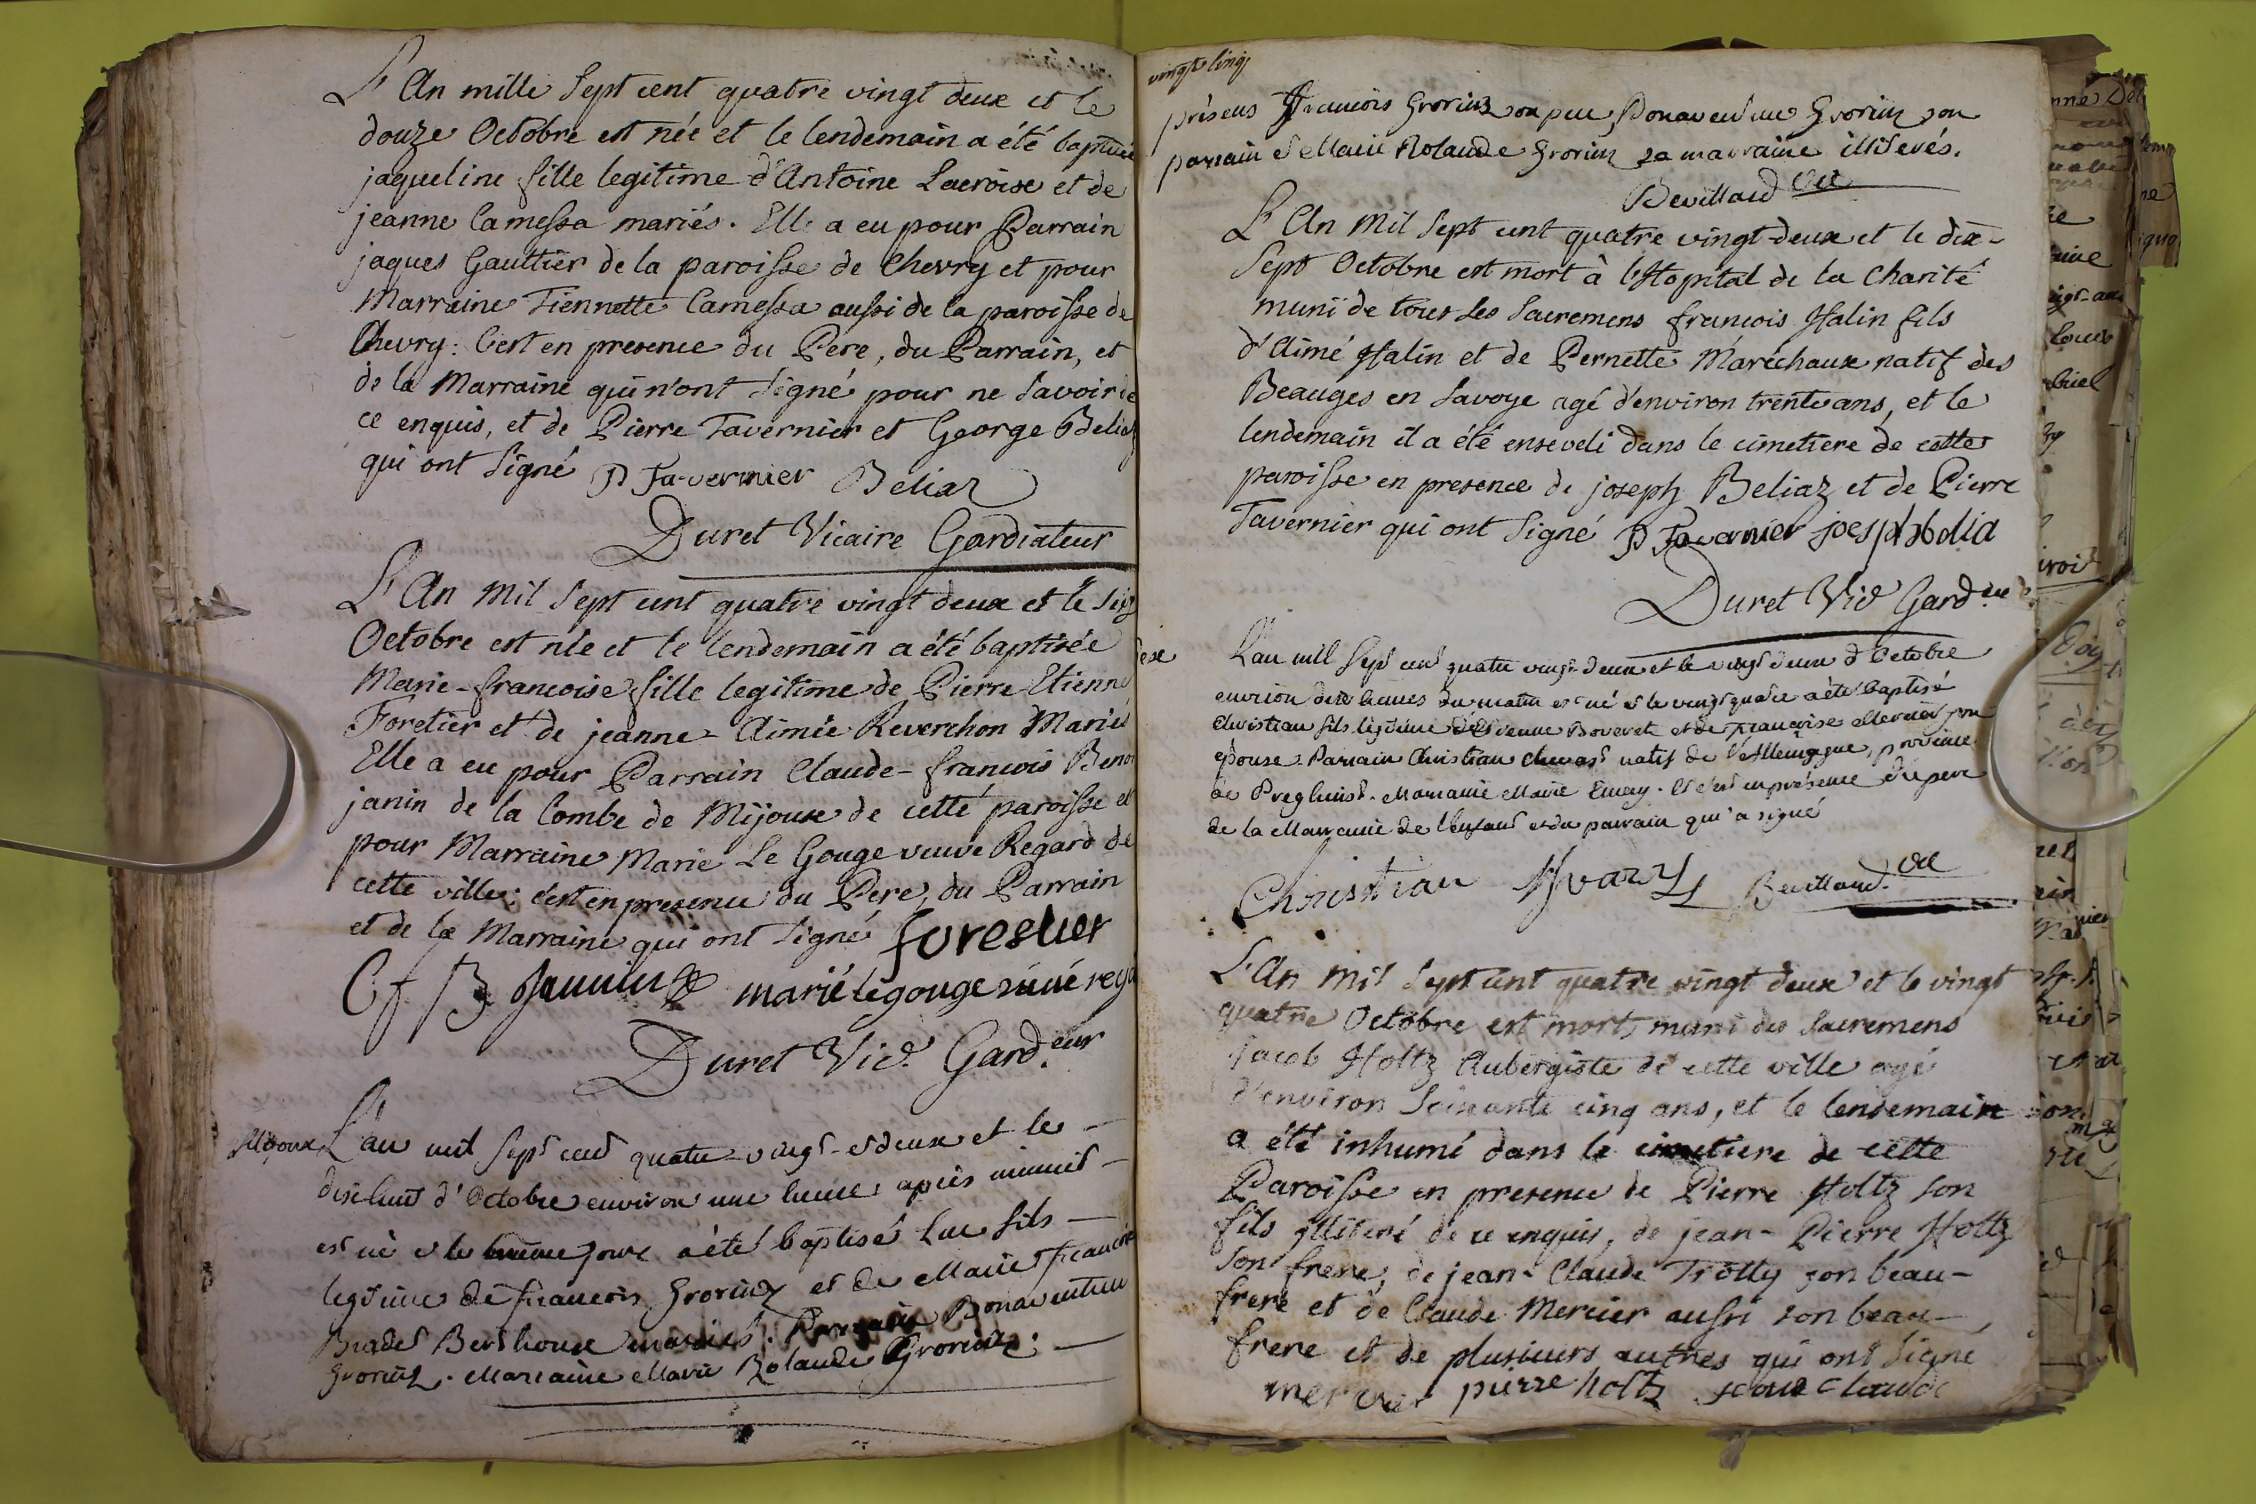 L'An mille Sept cent quatre vingt deux et le
douze Octobre est née et le lendemain a été baptisée
jaqueline fille legitime d'Antoine Lacroixe et de
jeanne Camessa mariés. Elle a eu pour Parrain
jaques Gauttier de la paroisse de Chevry et pour
Marraine Tiennette Camessa aussi de la paroisse de
Chevry: C'est en presence du Pere, du Parrain, et
de la Marraine qui n'ont Signé pour ne Savoir de
ce enquis, et de Pierre Tavernier et George Beliaz
qui ont Signé P Tavernier Beliaz
Duret Vicaire Gardiateur
L'An Mil Sept cent quatre vingt deux et le
Octobre est née et le lendemain a été baptisée
Marie-francoise fille legitime de Pierre Etienne
Foretier et de jeanne-Aimée Reverchon Mariés
Elle a eu pour Parrain Claude-francois Benoi
janin de la Combe de Mijoux de cette paroisse et
pour Marraine Marie Le Gouge veuve Regard de
cette ville: c'est en presence du Pere, du Parrain
et de la Marraine qui ont Signé forestier
C f B Jannin marie legouge
Duret Vic. Gard.eur
Mijoux
L'an mil Sept cent quatre-vingt-et deux et le
dixhuit d'Octobre environ une heure après minuit
est né et le même jour a été baptisé Luc fils
legitime de francois Grorinz et de Marie francoise
Berthoux mariés. Parrain Bonaventure
Grorinz. Marraine Marie Rolande Grorinz:
vingt cinq
présens francois Grorinz son pere Bonaventure Grorinz son
parrain et Marie Rolande Grorinz sa marraine illiterés.
Bevillard vic
L'An Mil Sept cent quatre vingt-deux et le dix-
Sept Octobre est mort à l'Hopital de la Charité
muni de tous Les Sacremens francois Halin fils
d'Aimé Halin et de Pernette Maréchaux natif des
Beauges en Savoye agé d'environ trente ans, et le
lendemain il a été enseveli dans le cimetiere de cette
paroisse en presence de joseph Beliaz et de Pierre
Tavernier qui ont Signé P Tavernier
Duret Vic Gard.eur
L'an mil Sept cent quatre vingt-deux et le vingt deux d'Octobre
environ dix heures du matin est né et le vingt quatre a été baptisé
Christian fils légitime d'Etienne Boverete et de Françoise Mercier son
épouse. Parrain Christian natif de l'Allemagne, province
de. Marraine Marie Emery. Et c'est en présence du pere
de la Marraine de l'enfant et du parrain qui a signé
Christian Bevillard. vic
L'An Mil Sept cent quatre vingt deux et le vingt
quatre Octobre est mort muni des Sacremens
Jacob Holtz Aubergiste de cette ville agé
d'environ Soixante cinq ans, et le lendemain
a été inhumé dans le cimetiere de cette
Paroisse en presence de Pierre Holtz Son
fils illiteré de ce enquis, de jean-Pierre Holtz
Son frere, de jean-Claude Trolty son beau-
frere et de Claude Mercier aussi son beau-
frere et de plusieurs autres qui ont Signé
mercier pierre holtz Claude